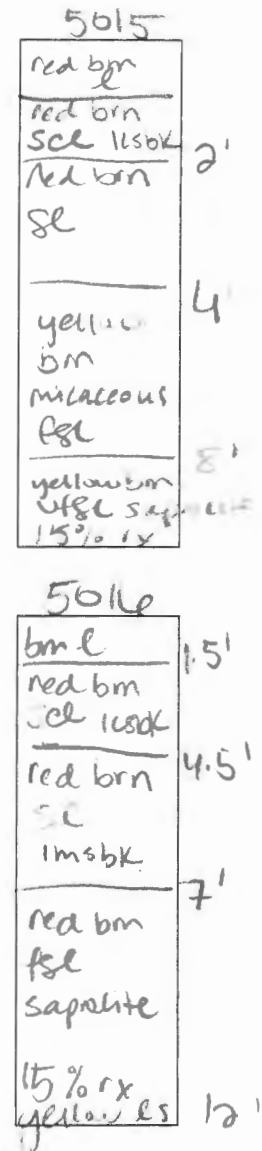 5015
red brn
l
red brn
scl 1csbk
2'
red brn
sl
4'
yellow
brn
micaceous
fsl
8'
yellow brn
vfsl saprolite
15% rx
5016
brn l
1.5'
red brn
scl 1csbk
4.5'
red brn
1msbk
7'
red brn
fsl
saprolite
15% rx
yellow ls
12'